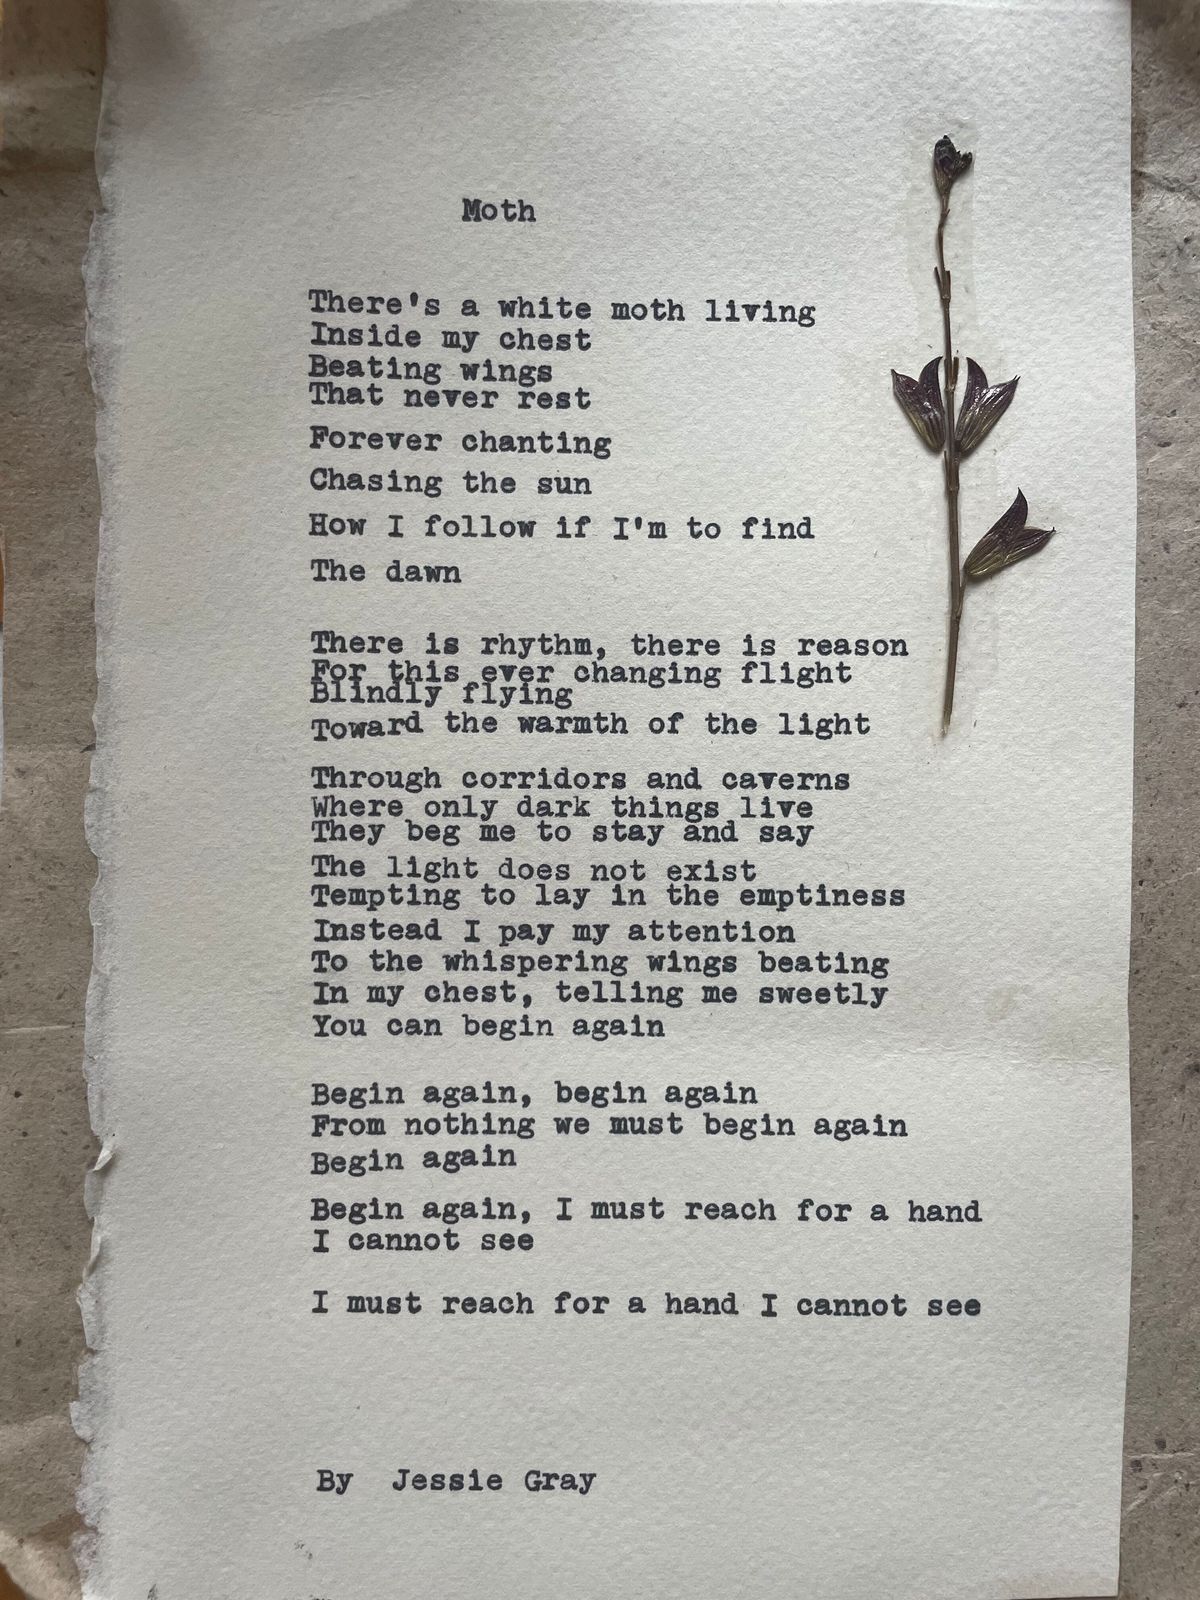 Moth
There's a white moth living
Inside my chest
Beating wings
That never rest
Forever chanting
Chasing the sun
How I follow if I'm to find
The dawn
There is rhythm, there is reason
For this ever changing flight
Blindly flying
Toward the warmth of the light
Through corridors and caverns
Where only dark things live
They beg me to stay and say
The light does not exist
Tempting to lay in the emptiness
Instead I pay my attention
To the whispering wings beating
In my chest, telling me sweetly
You can begin again
Begin again, begin again
From nothing we must begin again
Begin again
Begin again, I must reach for a hand
I cannot see
I must reach for a hand I cannot see
By Jessie Gray